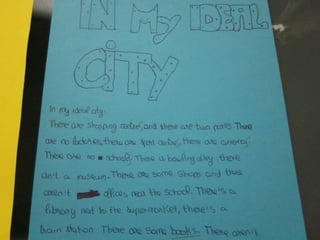 IN MY IDEAL
CITY
In my ideal city:
There are shopping centre, and there are two parks. There
are no factories, there are sport centre, there are cinemas.
There are no schools. There a bowling alley, there
isn't a museum. There are some shops and there
aren't offices near the school. There's a
library next to the supermarket, there's a
train station. There are some books. There aren't